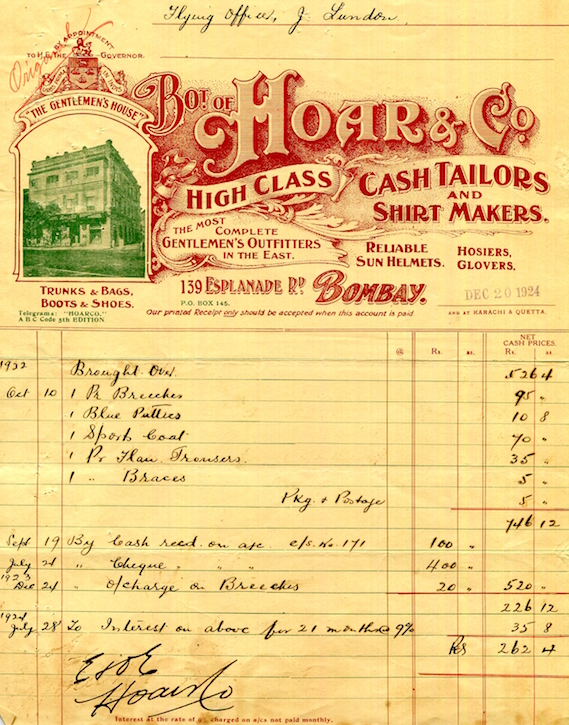 Flying Officer, J. Lundon.
Original
BY APPOINTMENT
TO H.E. THE GOVERNOR.
"THE GENTLEMEN'S HOUSE"
BOT. OF HOAR & Co.
HIGH CLASS
CASH TAILORS
AND
SHIRT MAKERS.
THE MOST
COMPLETE
GENTLEMEN'S OUTFITTERS
IN THE EAST.
RELIABLE
SUN HELMETS.
HOSIERS,
GLOVERS.
TRUNKS & BAGS,
BOOTS & SHOES.
139 ESPLANADE RD. BOMBAY.
DEC 20 1924
Telegrams: "HOARCO."
A B C Code 5th EDITION
P.O. BOX 145.
Our printed Receipt only should be accepted when this account is paid.
AND AT KARACHI & QUETTA.
@ Rs. as. NET CASH PRICES. Rs. as.
1922 Brought Over 526 4
Oct 10 1 Pr Breeches 95 "
1 Blue Putties 10 8
1 Sports Coat 70 "
1 Pr Flan Trousers. 35 "
1 " Braces 5 "
Pkg. & Postage 5 "
746 12
Sept 19 By Cash recd. on a/c c/s. No. 171 100 "
July 21 " Cheque " " " 400 "
1923
Dec 24 " o/charge on Breeches 20 " 520 "
226 12
1924
July 28 To Interest on above for 21 months @ 9% 35 8
Rs 262 4
E & O E
Hoar & Co
Interest at the rate of 9% charged on a/cs not paid monthly.